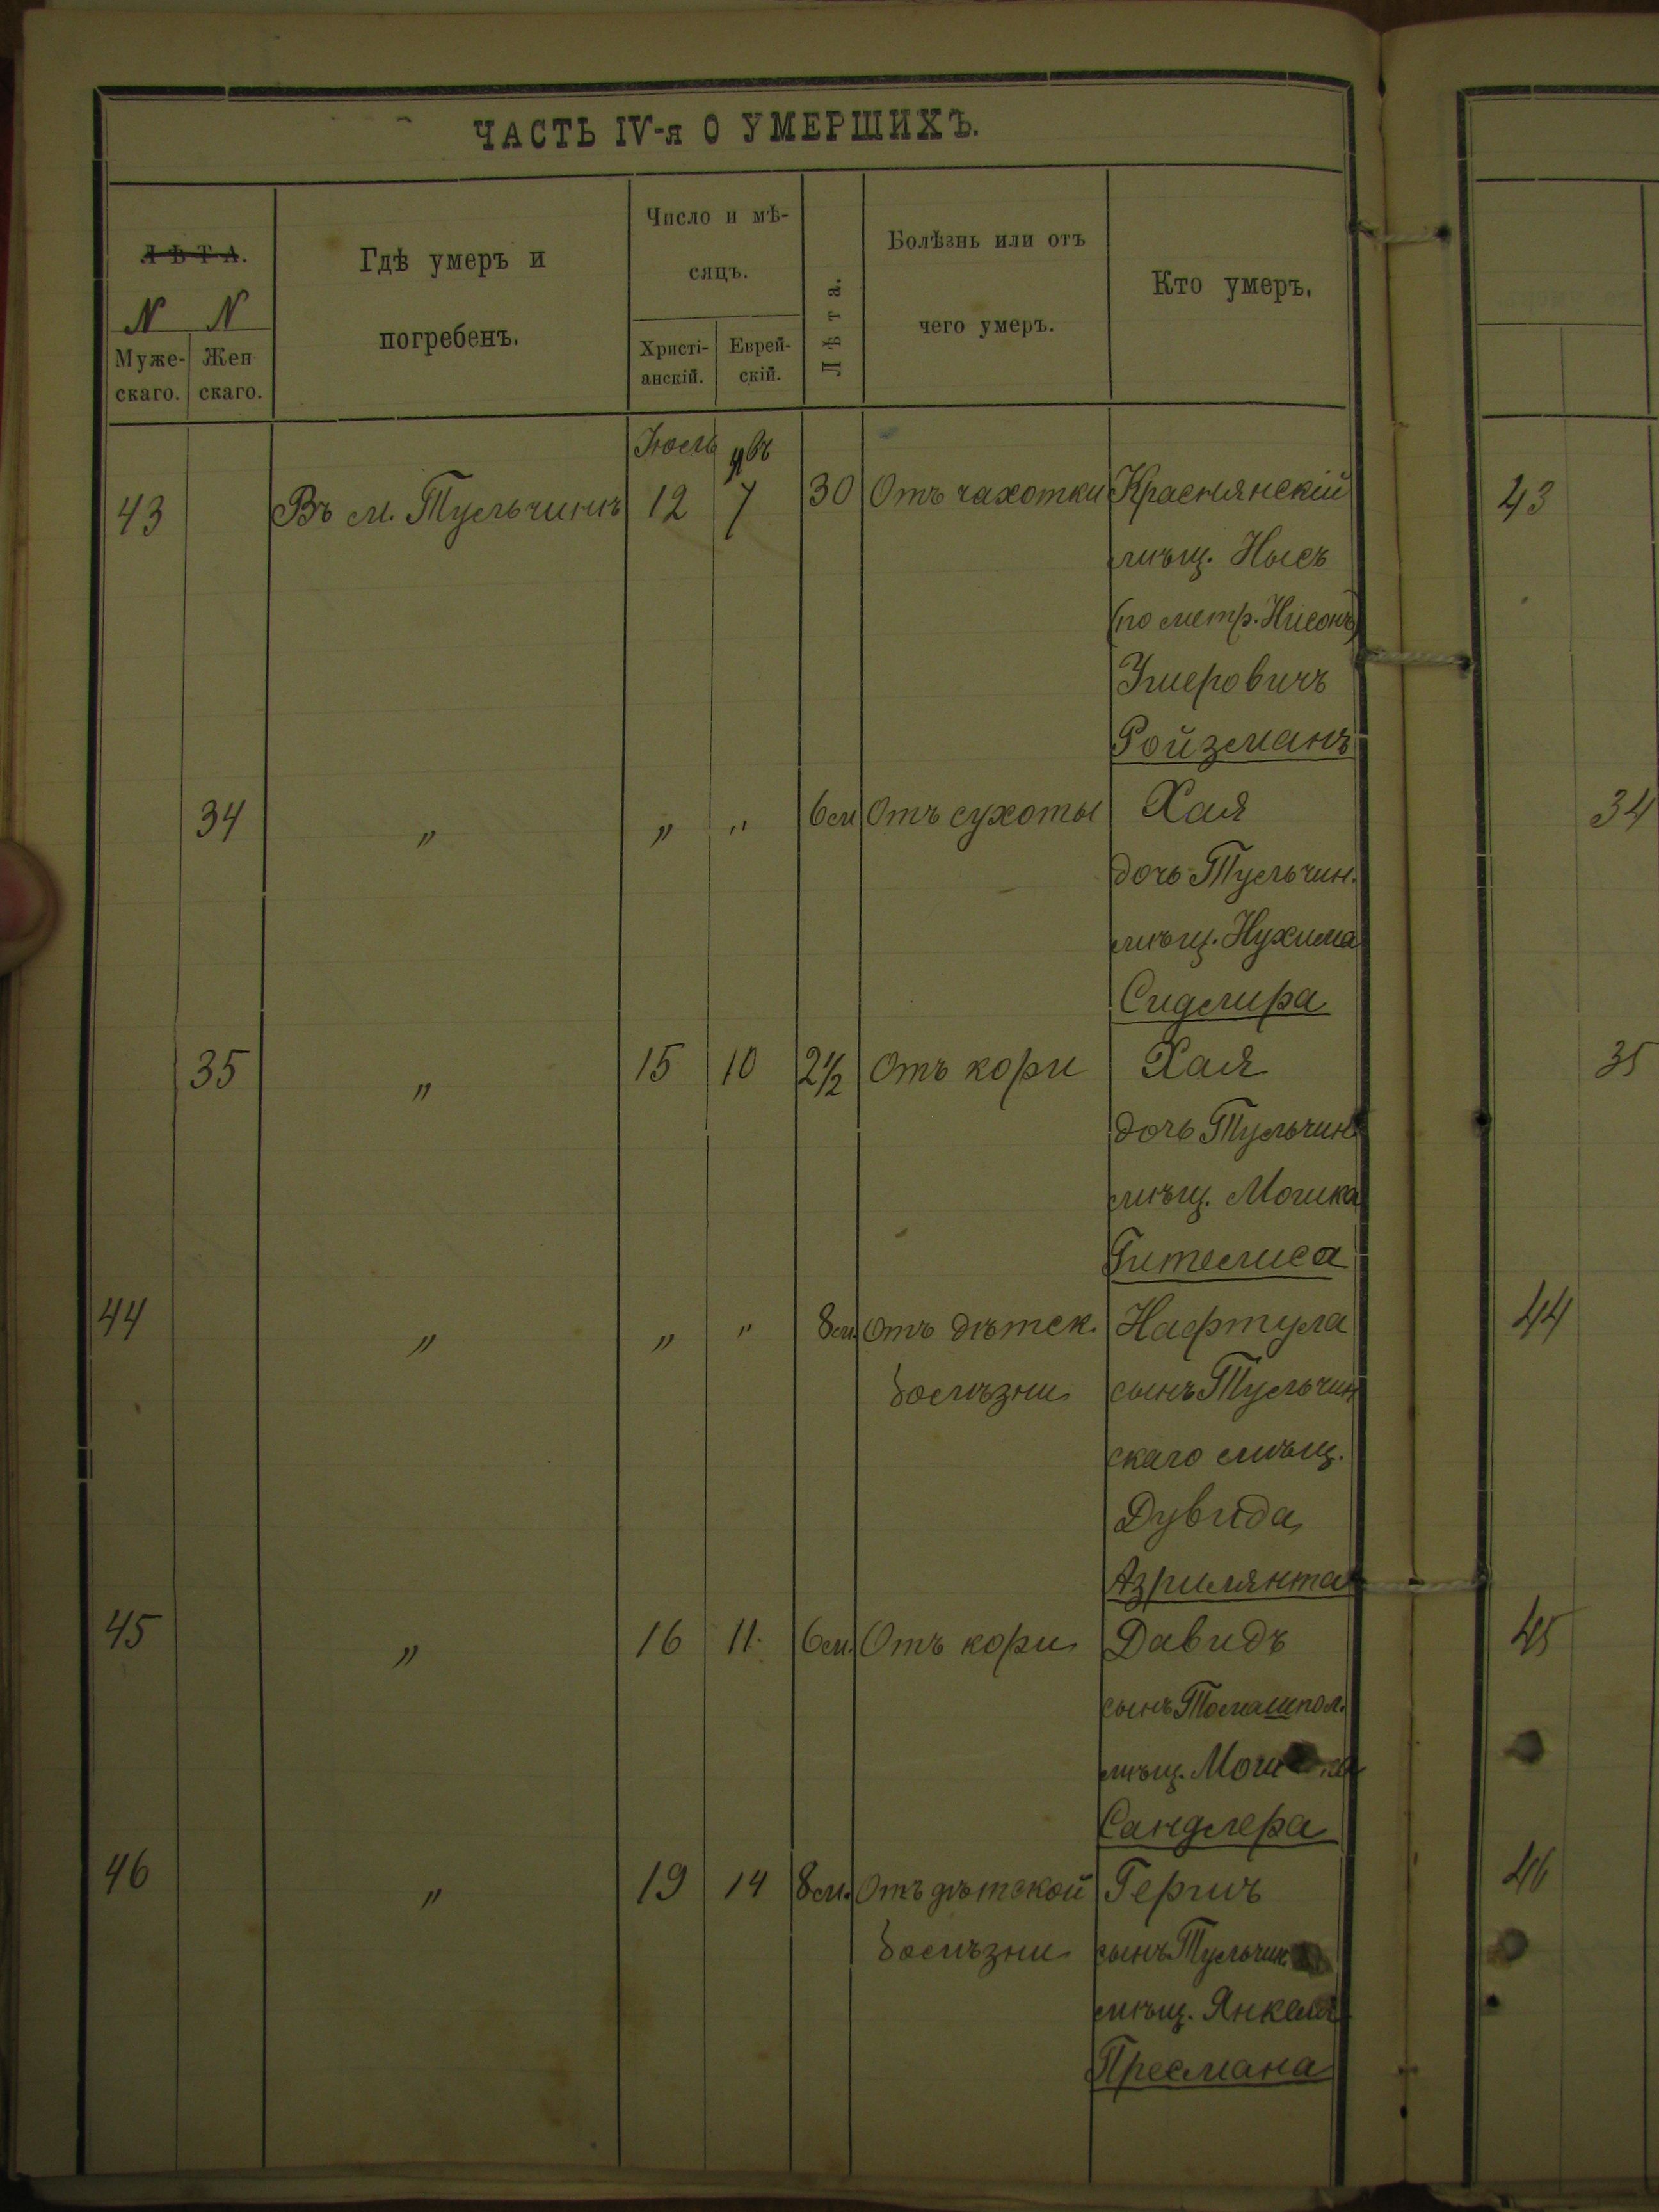 ЧАСТЬ IV-я О УМЕРШИХЪ.
ЛѢТА.
N N
Муже-
скаго.
Жен
скаго.
Гдѣ умеръ и
погребенъ.
Число и мѣ-
сяцъ.
Христі-
анскій.
Еврей-
скій.
Лѣта.
Болѣзнь или отъ
чего умеръ.
Кто умеръ.
Іюль
43 Въ м. Тульчинѣ 12 7 30 Отъ чахотки Краснянскій 43
мѣщ. Нысъ
(по метр. Нисонъ)
Ройзманъ
34 " " " 6 м Отъ сухоты Хая 34
дочь Тульчин.
мѣщ. Нухима
Сидлира
35 " 15 10 2½ Отъ кори Хая 35
дочь Тульчин
мѣщ. Мошка
Гителиса
44 " " " 8 м. Отъ дѣтск. Нафтула 44
болѣзни сынъ Тульчин
скаго мѣщ.
Дувида
Азрилянта
45 " 16 11. 6 м. Отъ кори Давидъ 45
сынъ Томашпол.
мѣщ.
Сандлера
46 " 19 14 8 м. Отъ дѣтской Гершъ 46
болѣзни сынъ Тульчин.
мѣщ. Янкеля
Пресмана